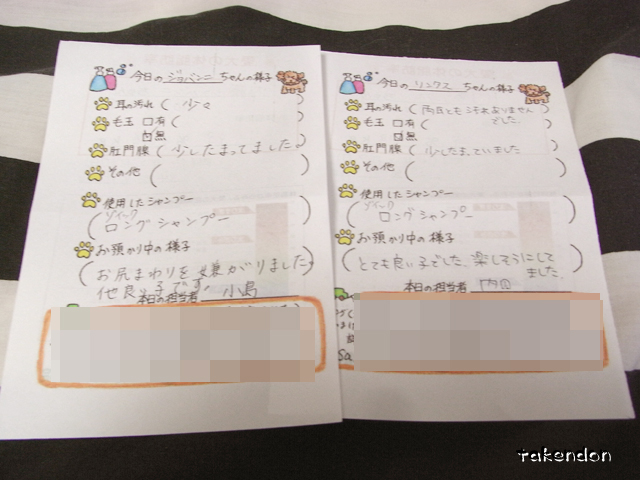 今日の ジョバンニ ちゃんの様子
耳の汚れ ( 少々 )
毛玉 口有 (
口無
肛門腺 ( 少したまってました。)
その他 ( )
使用したシャンプー
ゾイック
( ロングシャンプー )
お預かり中の様子
( お尻まわりを嫌がりました。
他良い子です。
本日の担当者 小島
今日の リンクス ちゃんの様子
耳の汚れ (両耳とも
でした。
毛玉 口有 (
口無
肛門腺 ( 少したまっていました )
その他 ( )
使用したシャンプー
ゾイック
( ロングシャンプー )
お預かり中の様子
( とても良い子でした。楽しそうにして
ました。 )
本日の担当者
Sa
rakendon